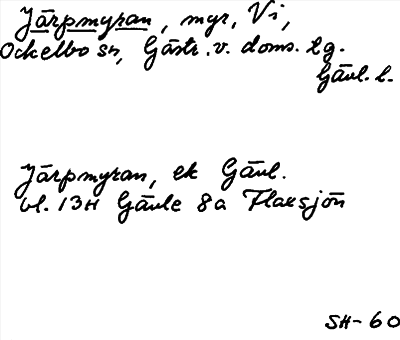 Järpmyran, myr, Vi,
Ockelbo sn, Gästr. v. doms. lg.
Gävl. l.
Järpmyran, ek Gävl.
bl. 13H Gävle 8a Flaksjön
SH-60